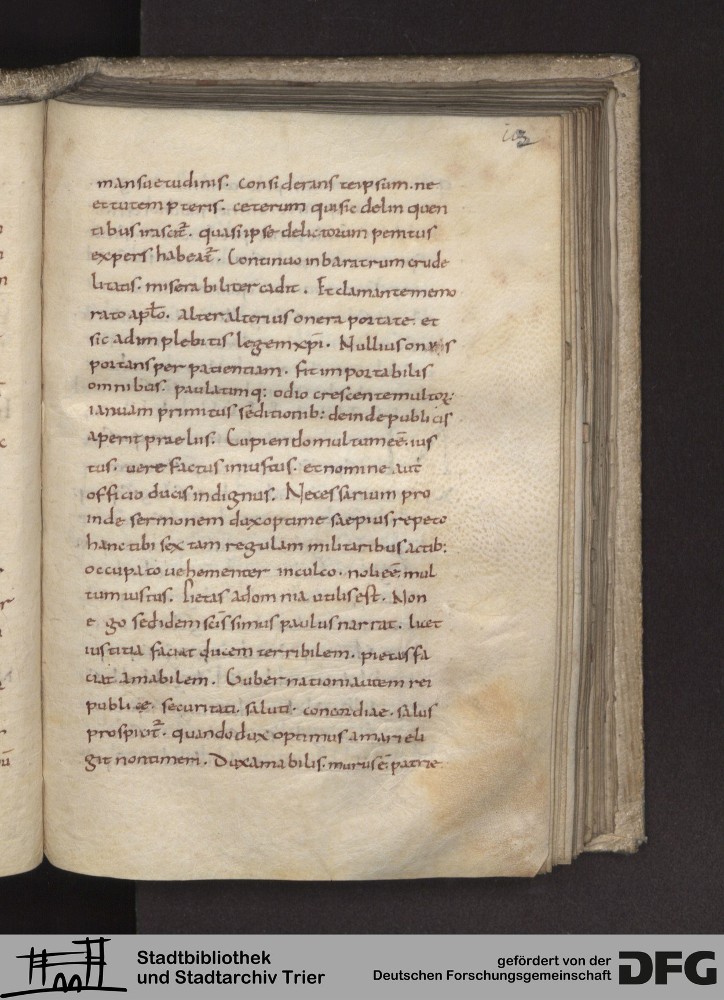 103
mansuetudinis. Considerans teipsum. ne
et tu tempteris. ceterum qui sic delinquen
tibus irascit᷒. quasi ipse delictorum penitus
expers habeat᷒. Continuo in baratrum crude
litatis. miserabiliter cadit. Et clamante memo
rato aplo. alter alterius onera portate. et
sic adimplebitis legem xpi. Nullius onus
portans per patientiam. fit importabilis
omnibus. paulatimq: odio crescente multor:
ianuam primitus seditionib: deinde publicis
aperit praeliis. Cupiendo multum eē. ius
tus. vere factus iniustus. et nomine aut
officio ducis indignus. Necessarium pro
inde sermonem dux optime saepius repeto
hanc tibi sextam regulam militaribus actib:
occupato vehementer inculco. noli eē mul
tum iustus. Pietas ad omnia utilis est. Non
ego sed idem scissimus paulus narrat. licet
iustitia faciat ducem terribilem. pietas fa
ciat amabilem. Gubernationi autem rei
publice. securitati. saluti. concordiae. salus
prospicit᷒. quando dux optimus amari eli
git non timeri. Dux amabilis. murus ē patrie
Stadtbibliothek
und Stadtarchiv Trier
gefördert von der
Deutschen Forschungsgemeinschaft
DFG